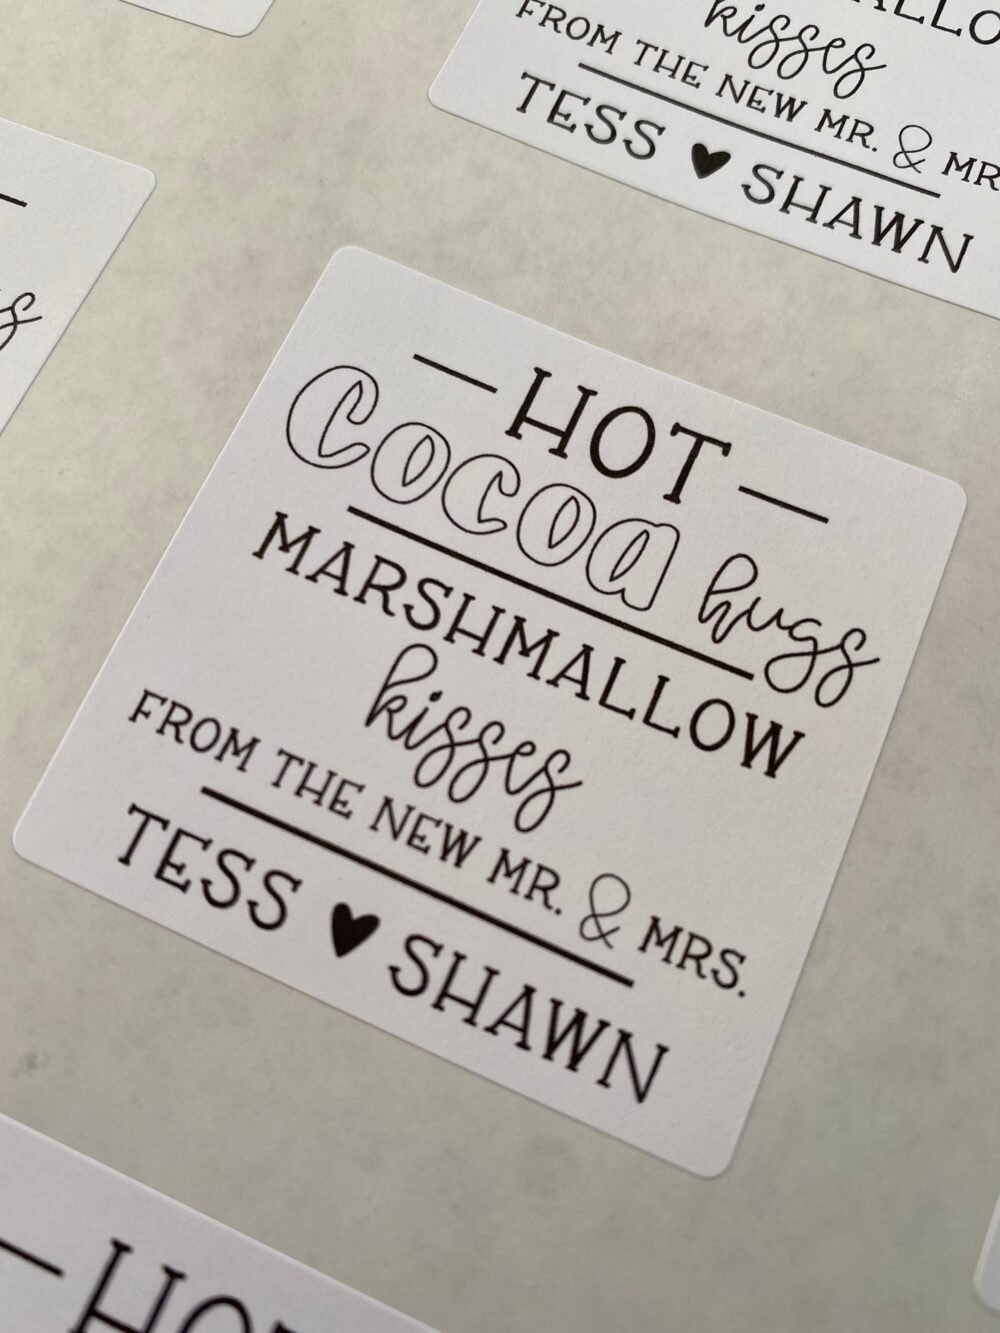 kisses
FROM THE NEW MR. & MR
TESS ♥ SHAWN
HOT
Cocoa hugs
MARSHMALLOW
kisses
FROM THE NEW MR. & MRS.
TESS ♥ SHAWN